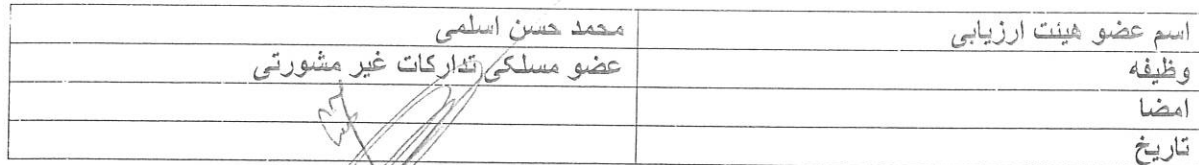 اسم عضو هیئت ارزیابی محمد حسن اسلمی
وظیفه عضو مسلکی تدارکات غیر مشورتی
امضا
تاریخ